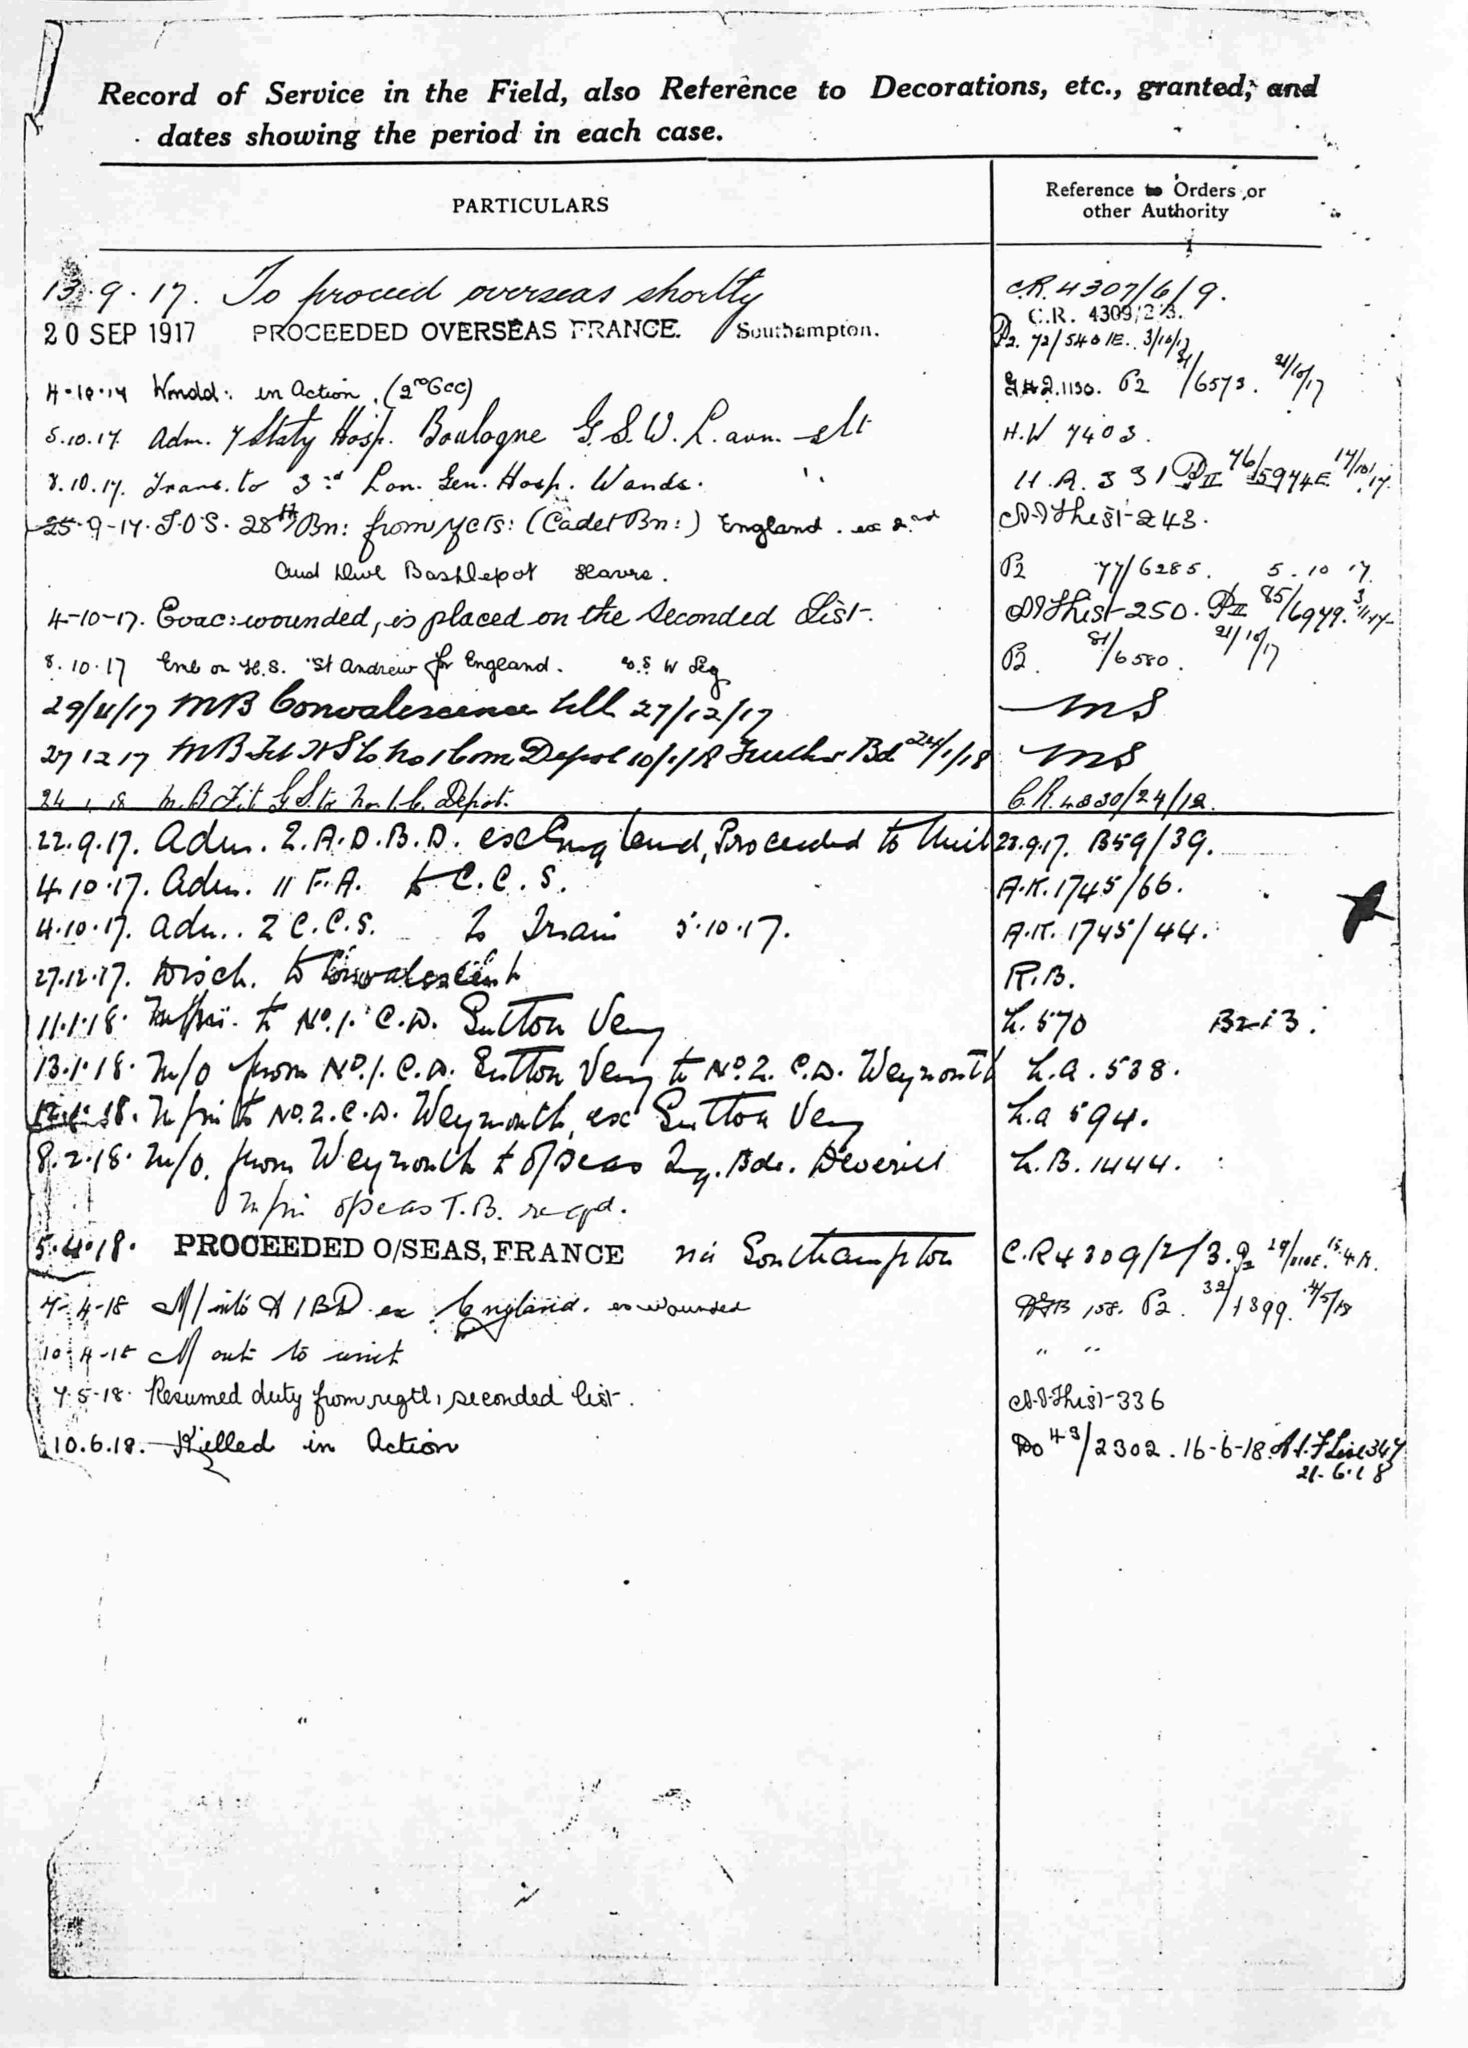 Record of Service in the Field, also Reference to Decorations, etc., granted, and
dates showing the period in each case.
PARTICULARS
Reference to Orders or
other Authority
13.9.17. To proceed overseas shortly C.R. 4307/6/9.
20 SEP 1917 PROCEEDED OVERSEAS FRANCE. Southampton. C.R. 4309/2/3.
P2. 72/5401E. 3/10/17
4.10.17 Wondd: in Action. (2nd Occ) 1130. P2 /6573. 21/10/17
5.10.17. Adm. 7 Staty Hosp. Boulogne G.S.W. L. arm. slt H.W 7403.
8.10.17. Trans. to 3rd Lon. Gen. Hosp. Wands. " H.A. 331 PII 76/5974E 17/10/17.
25.9.17. T.O.S. 28th Bn: from rfcts: (Cadet Bn:) England. ex 2nd list 243.
Aust Divl BaseDepot Havre. P2 77/6285. 5.10 17.
4-10-17. Evac: wounded, is placed on the Seconded List. list 250. PII 85/6979.
8.10.17 Emb on H.S. "St Andrew for England. G.S W Leg P2. 81/6580. 21/10/17
29/11/17 MB Convalescence till 27/12/17 MS
27 12 17 MB Fit H S to No 1 Com Depot 10/1/18 Further Bd 24/1/18 MS
24.1.18 M.B Fit G.S. to No. 1. C. Depot. C.R. 4330/24/12.
22.9.17. Adm. 2.A.D.B.D. ex England, Proceeded to Unit 23.9.17. B59/39.
4.10.17. Adm. 11 F.A. to C.C.S. A.K. 1745/66.
4.10.17. Adm.. 2 C.C.S. To Train 5.10.17. A.K. 1745/44.
27.12.17. Disch. to Convalescent R.B.
11.1.18. M/in. to No.1. C.D. Sutton Veny L. 570 B213.
13.1.18. M/O from No.1. C.D. Sutton Veny to No.2. C.D. Weymouth L.A. 538.
M/in to No.2. C.D. Weymouth, ex Sutton Veny L.A 594.
8.2.18. M/O. from Weymouth to O/seas Trg. Bde. Deverill L.B. 1444.
M/in O/seas T.B. reqd.
5.4.18. PROCEEDED O/SEAS, FRANCE via Southampton C.R 4309/2/3. P2 29/
7-4-18 M/ into A I B D ex England. ex wounded 158. P2. 32/1399. 4/5/18
10-4-18 M out to unit " "
7.5-18. Resumed duty from regtl, seconded list. list 336
10.6.18. Killed in Action Do 43/2302. 16-6-18. A.I.F List 347
21.6.18